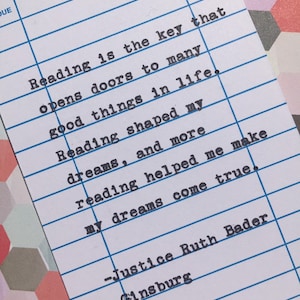 DUE
Reading is the key that
opens doors to many
good things in life.
Reading shaped my
dreams, and more
reading helped me make
my dreams come true.
-Justice Ruth Bader
Ginsburg